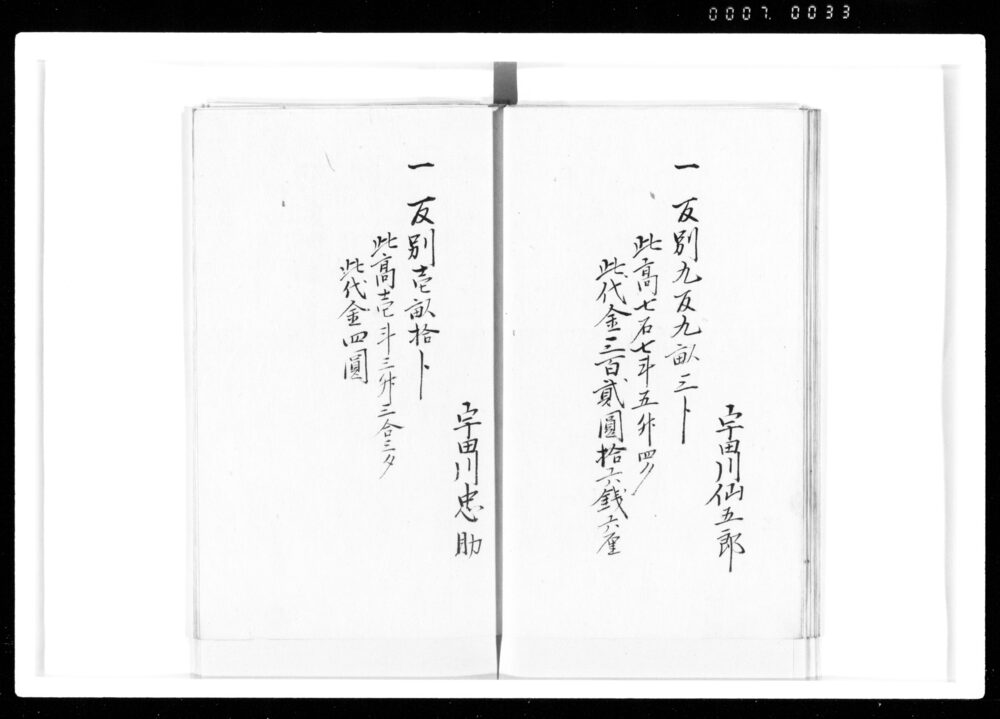 0007. 0033
宇田川仙五郎
一反別九反九畝三卜
此高七石七斗五舛四夕
此代金三百貳圓拾六銭六厘
宇田川忠助
一反別壱畝拾卜
此高壱斗三舛三合三夕
此代金四圓